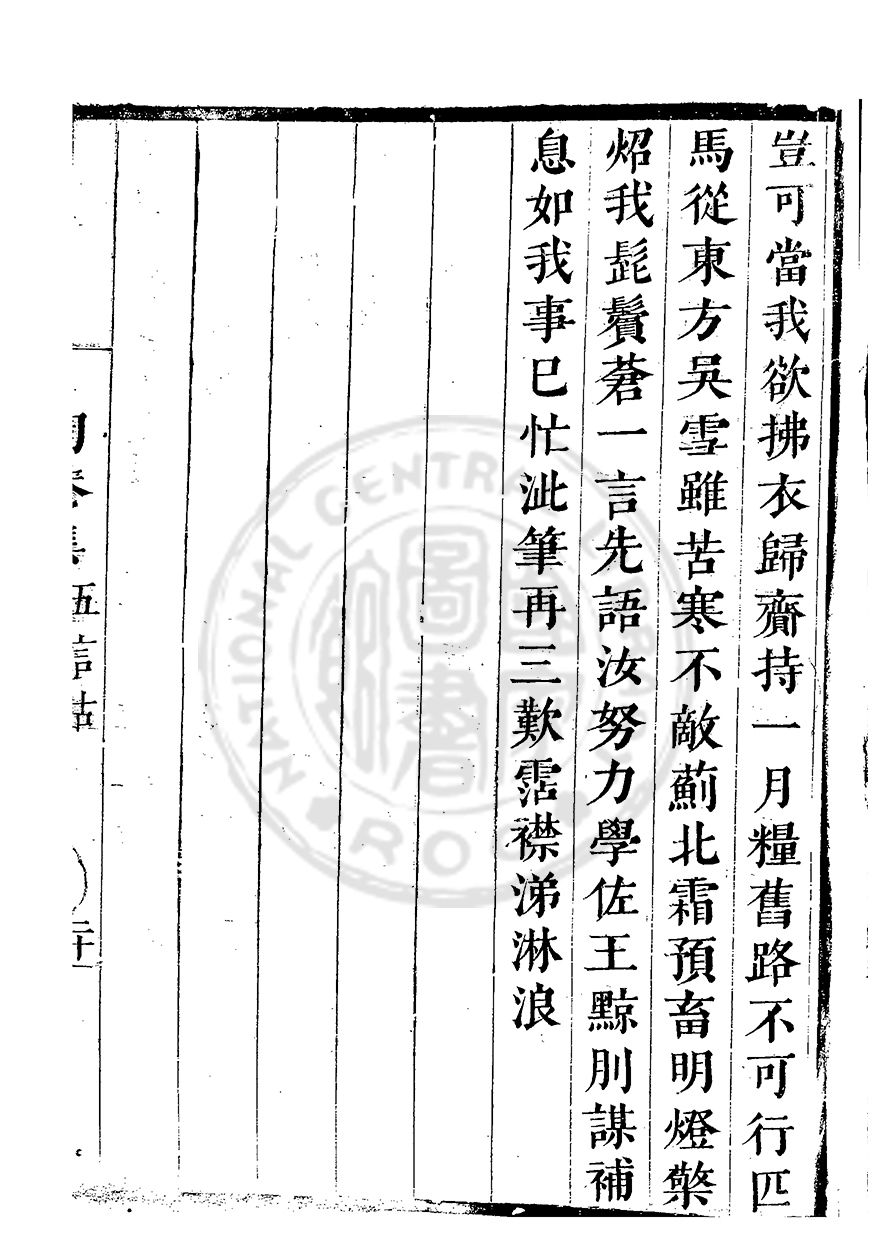 豈可當我欲拂衣歸齎持一月糧舊路不可行匹
馬從東方吳雪雖苦寒不敵薊北霜預畜明燈檠
炤我髭鬢蒼一言先語汝努力學佐王黥刖謀補
息如我事已忙泚筆再三歎霑襟涕淋浪
集 五言古
二十
NATIONAL CENTRAL LIBRARY
R.O.C